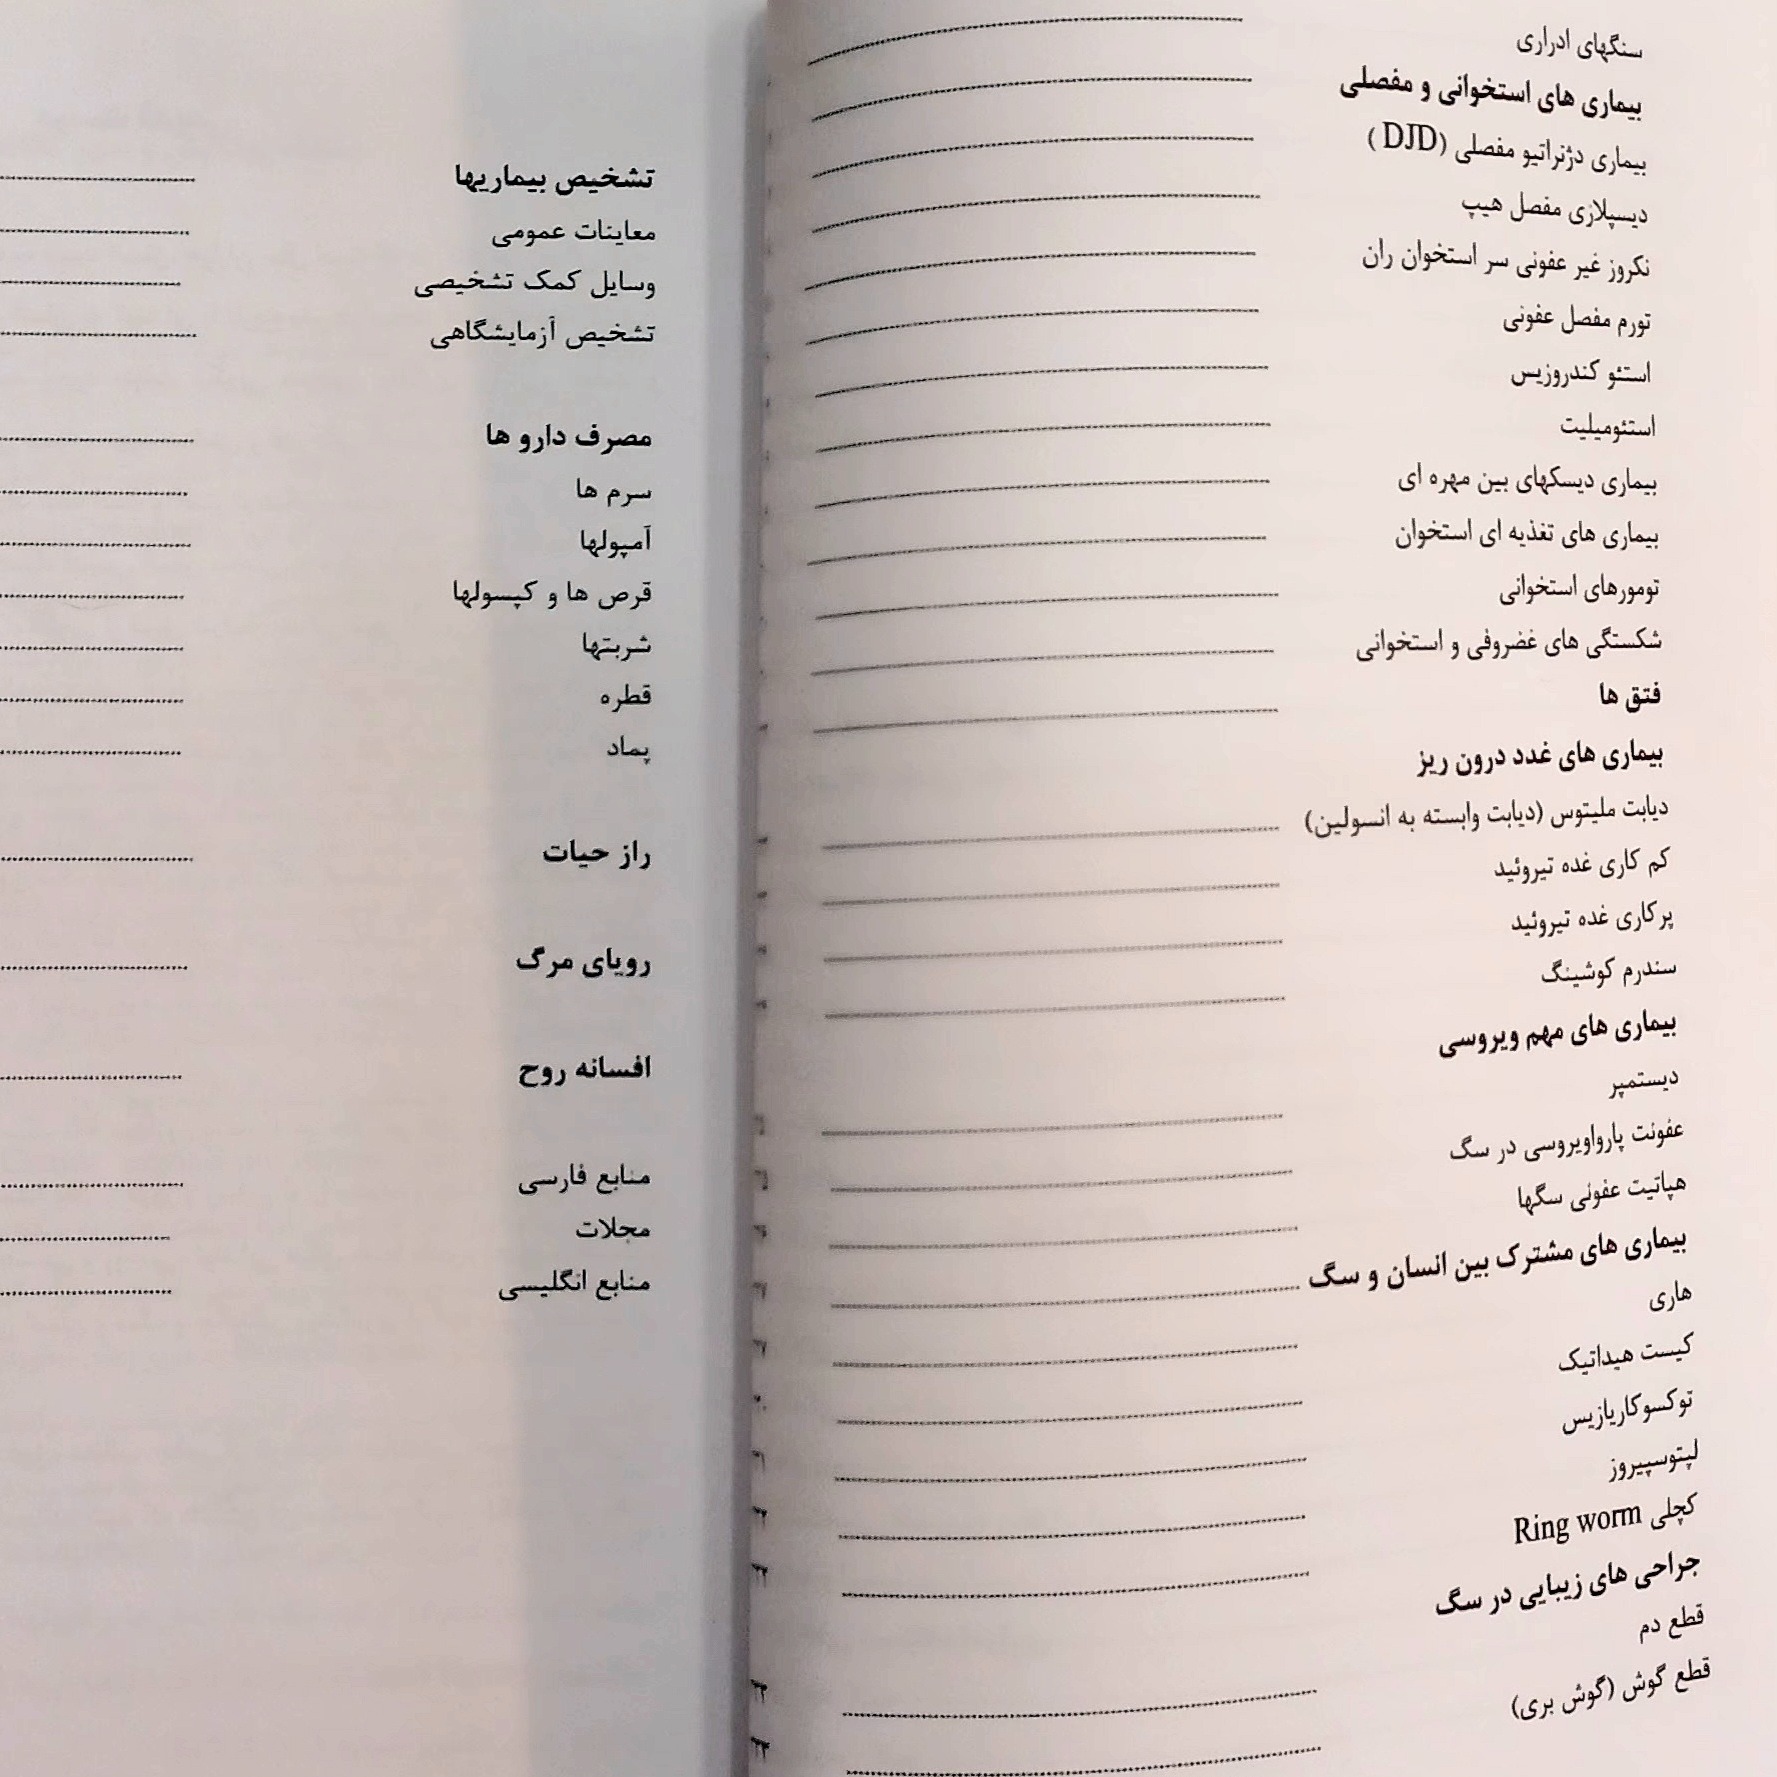 سنگهای ادراری
بیماری های استخوانی و مفصلی
بیماری دژنراتیو مفصلی (DJD )
دیسپلازی مفصل هیپ
نکروز غیر عفونی سر استخوان ران
تورم مفصل عفونی
استئو کندروزیس
استئومیلیت
بیماری دیسکهای بین مهره ای
بیماری های تغذیه ای استخوان
تومورهای استخوانی
شکستگی های غضروفی و استخوانی
فتق ها
بیماری های غدد درون ریز
دیابت ملیتوس (دیابت وابسته به انسولین)
کم کاری غده تیروئید
پرکاری غده تیروئید
سندرم کوشینگ
بیماری های مهم ویروسی
دیستمپر
عفونت پارواویروسی در سگ
هپاتیت عفونی سگها
بیماری های مشترک بین انسان و سگ
هاری
کیست هیداتیک
توکسوکاریازیس
لپتوسپیروز
کچلی Ring worm
جراحی های زیبایی در سگ
قطع دم
قطع گوش (گوش بری)
تشخیص بیماریها
معاینات عمومی
وسایل کمک تشخیصی
تشخیص آزمایشگاهی
مصرف دارو ها
سرم ها
آمپولها
قرص ها و کپسولها
شربتها
قطره
پماد
راز حیات
رویای مرگ
افسانه روح
منابع فارسی
مجلات
منابع انگلیسی